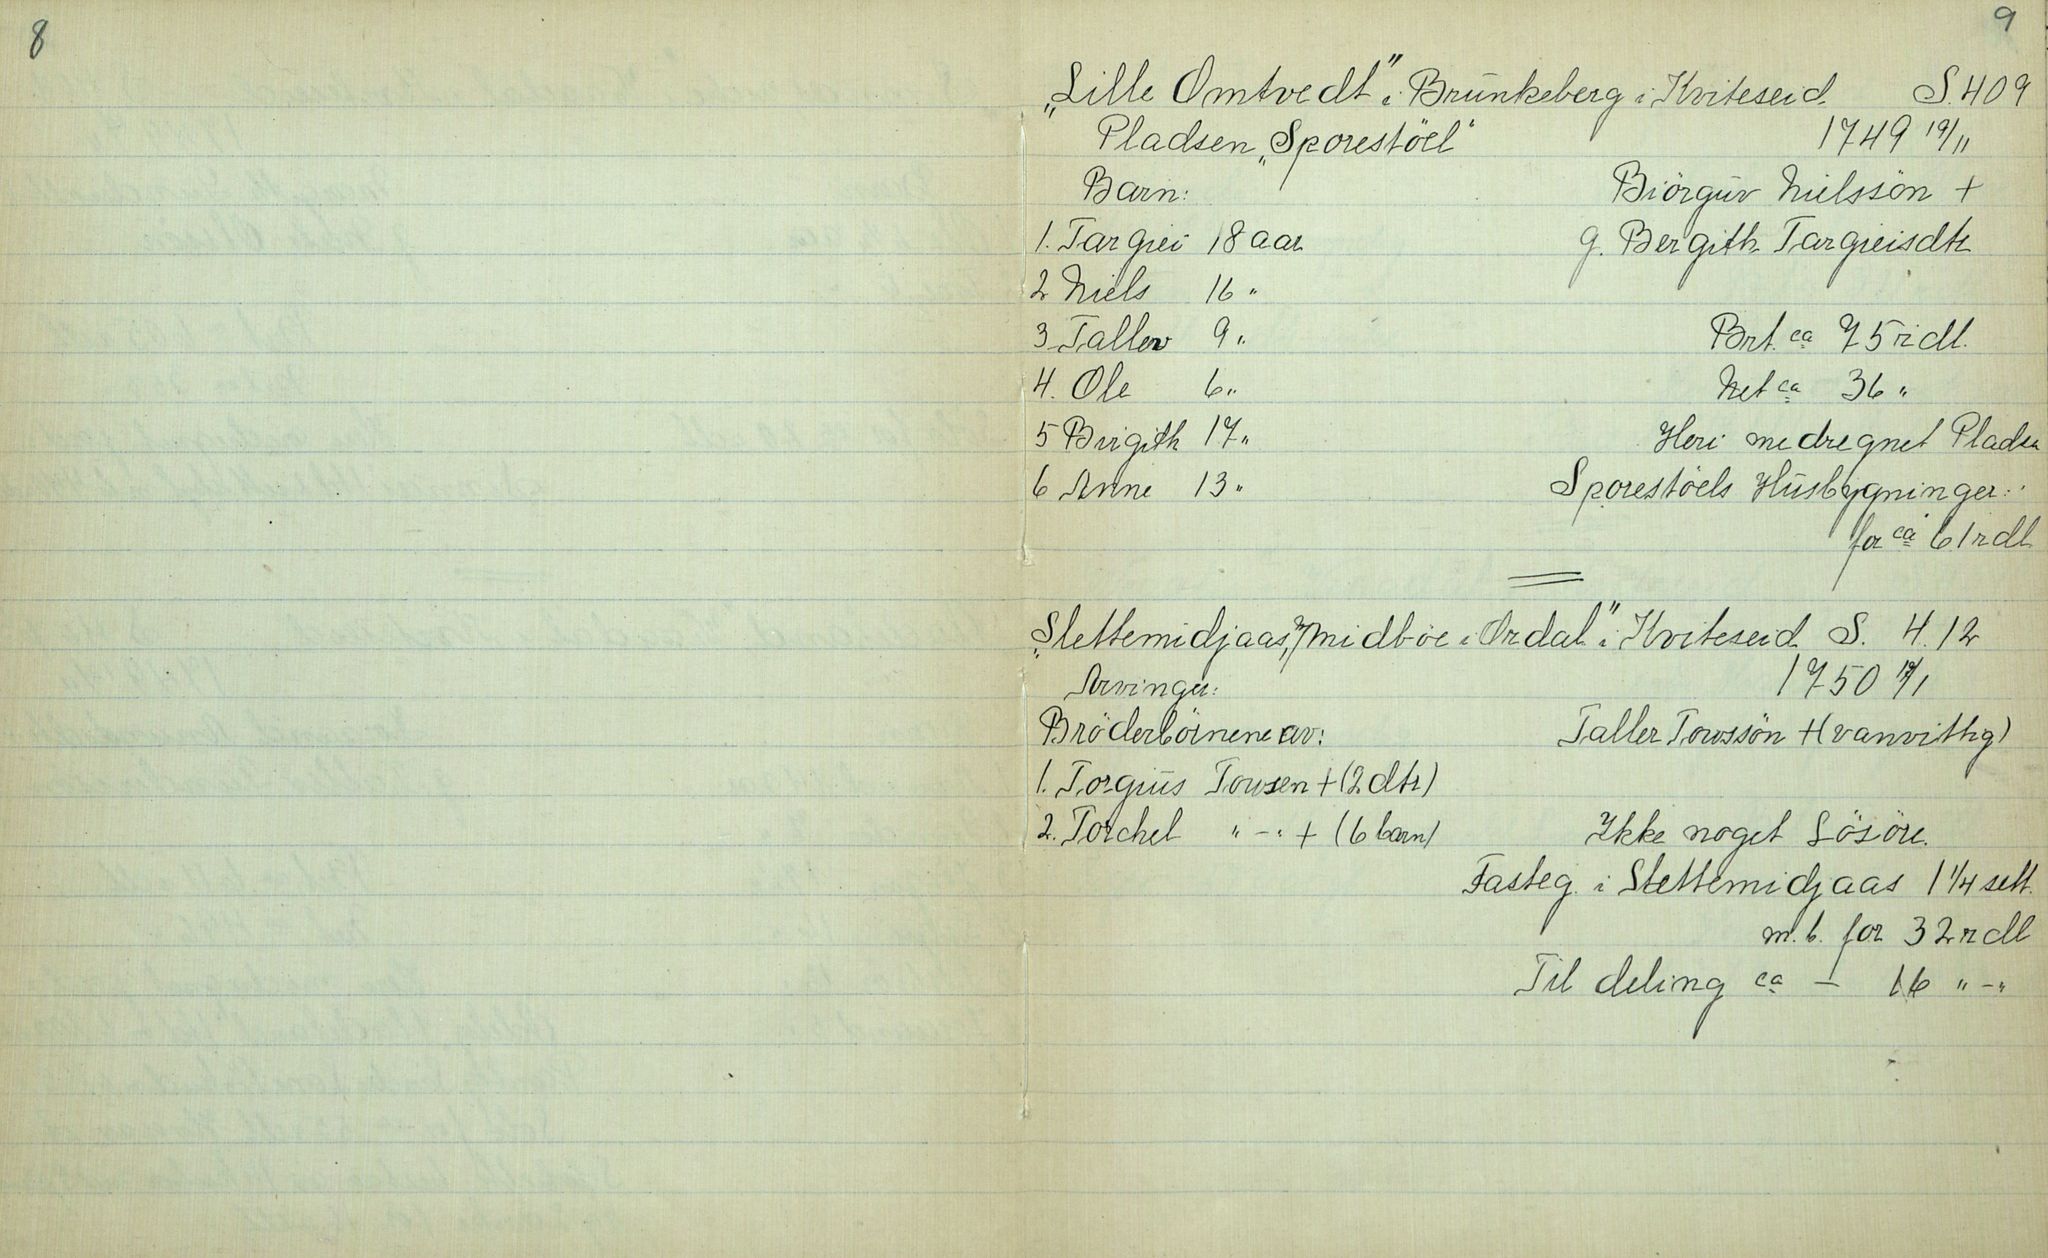 8
9
„Lille Omtvedt" i Brunkeberg i Kviteseid S. 409
Pladsen „Sporestöel" 1749 19/11
Barn: Biörguv Nielssön +
1. Targiei 18 aar g. Bergith Targieisdtr
2 Niels 16 "
3 Tallev 9 " Brt. ca 75 rdl.
4. Ole 6 " Net ca 36 "
5 Birgith 17 " Heri medregnet Pladsn
6 Anne 13 " Sporestöels Husbygninger
for ca 61 rdl
„Slettemidjaas, Midböe i Ordal" i Kviteseid S. 4.12
Arvinger: 1750 /1
Bröderbörnene av: Tallev Towssön + (vanvittig)
1. Torgius Towsen + (2 dtr)
2. Torchel " - " + (6 barn) Ikke noget Lösöre.
Fasteg. i Slettemidjaas 1 1/4 sett.
m. b. for 32 rdl
Til deling ca — 16 " - "